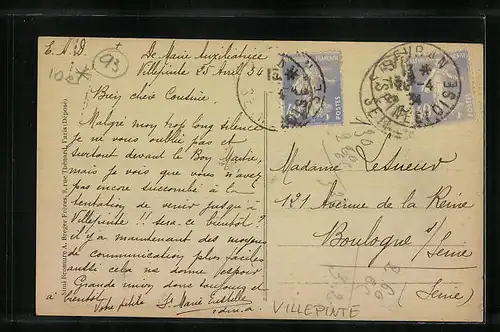 E.M.D. +
93
De Marie Auxiliatrice
Villepinte 25 Avril 34
Bien chère Cousine.
Malgré mon trop long silence
je ne vous oublie pas et
surtout devant le Bon Maître,
mais je vois que vous n'avez
pas encore succombé à la
tentation de venir jusqu'à
Villepinte !! sera-ce bientôt?
il y a maintenant des moyens
de communication plus faciles
aussi cela me donne l'espoir
Grande union donc toujours et
à bientôt
Votre petite Sr Marie
SEVRAN
POSTES
POSTES
Madame Lesueur
121 Avenue de la Reine
Boulogne s/ Seine
(Seine)
VILLEPINTE
Simi-Bromure A. Breger Frères, 9, rue Thénard, Paris (Déposé)